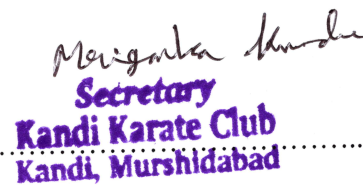 Mriganka Kundu
Secretary
Kandi Karate Club
Kandi, Murshidabad